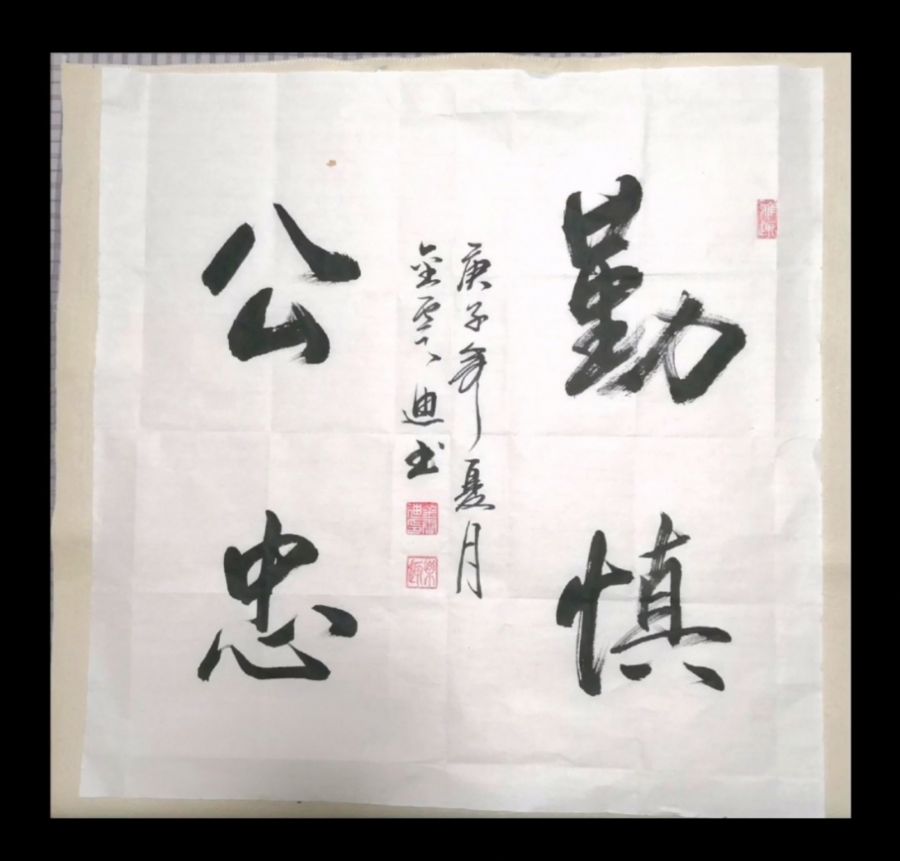 勤慎
公忠
庚子年夏月
金雲迪书